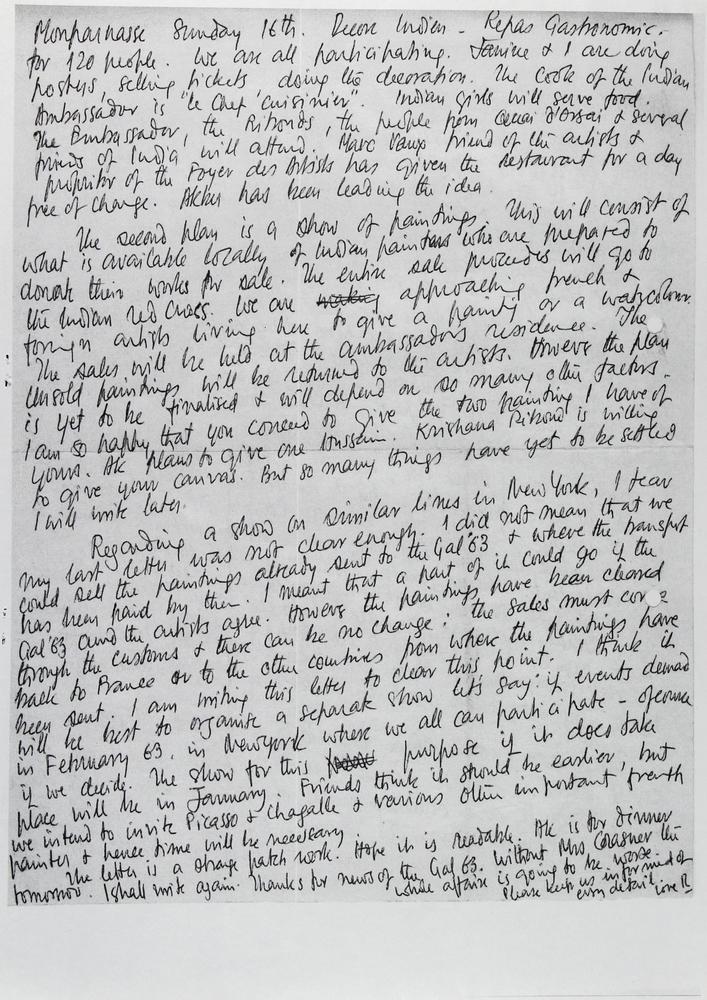 Monparnasse Sunday 16th. Decore Indien - Repas Gastronomic.
for 120 people. We are all participating. Janine & I are doing
posters, selling tickets, doing the decoration. The cook of the Indian
Ambassador is "le Chef 'cuisinier". Indian girls will serve food.
The Embassador, the Ribouds, the people from Quai d'Orsai & several
friends of India will attend. Marc Vaux friend of the artists &
propritor of the Foyer des Artists has given the restaurant for a day
free of charge. Akbar has been leading the idea.
The second plan is a show of paintings. This will consist of
what is available locally of Indian painters who are prepared to
donate their works for sale. The entire sale procedes will go to
the Indian red Cross. We are making approaching french &
foreign artists living here to give a painting or a watercolour.
The sales will be held at the ambassador's residence. The
Unsold paintings will be returned to the artists. However the plan
is yet to be finalised & will depend on so many other factors.
I am so happy that you consend to give the two painting I have of
yours. Ak plans to give one Hussain. Krishana Riboud is willing
to give your canvas. But so many things have yet to be settled
I will write later.
Regarding a show on similar lines in New York, I fear
my last letter was not clear enough. I did not mean that we
could sell the paintings already sent to the Gal'63 & where the transport
has been paid by them. I meant that a part of it could go if the
Gal'63 and the artists agree. However the paintings have been cleared
through the customs & there can be no change: the sales must come
back to France or to the other countries from where the paintings have
been sent. I am writing this letter to clear this point. I think it
will be best to organise a separate show let's say: if events demad
in February 63. in New York where we all can participate - ofcourse
if we decide. The show for this purpose if it does take
place will be in January. Friends think it should be earlier, but
we intend to invite Picasso & Chagalle & various other important french
painters & hence time will be necessary
The letter is a strange patch work. Hope it is readable. Ak is for dinner
tomorrow. I shall write again. Thanks for news of the Gal 63. Without Mrs Grasner the
whole affaire is going to be worse.
Please keep us informed of
every detail. love R